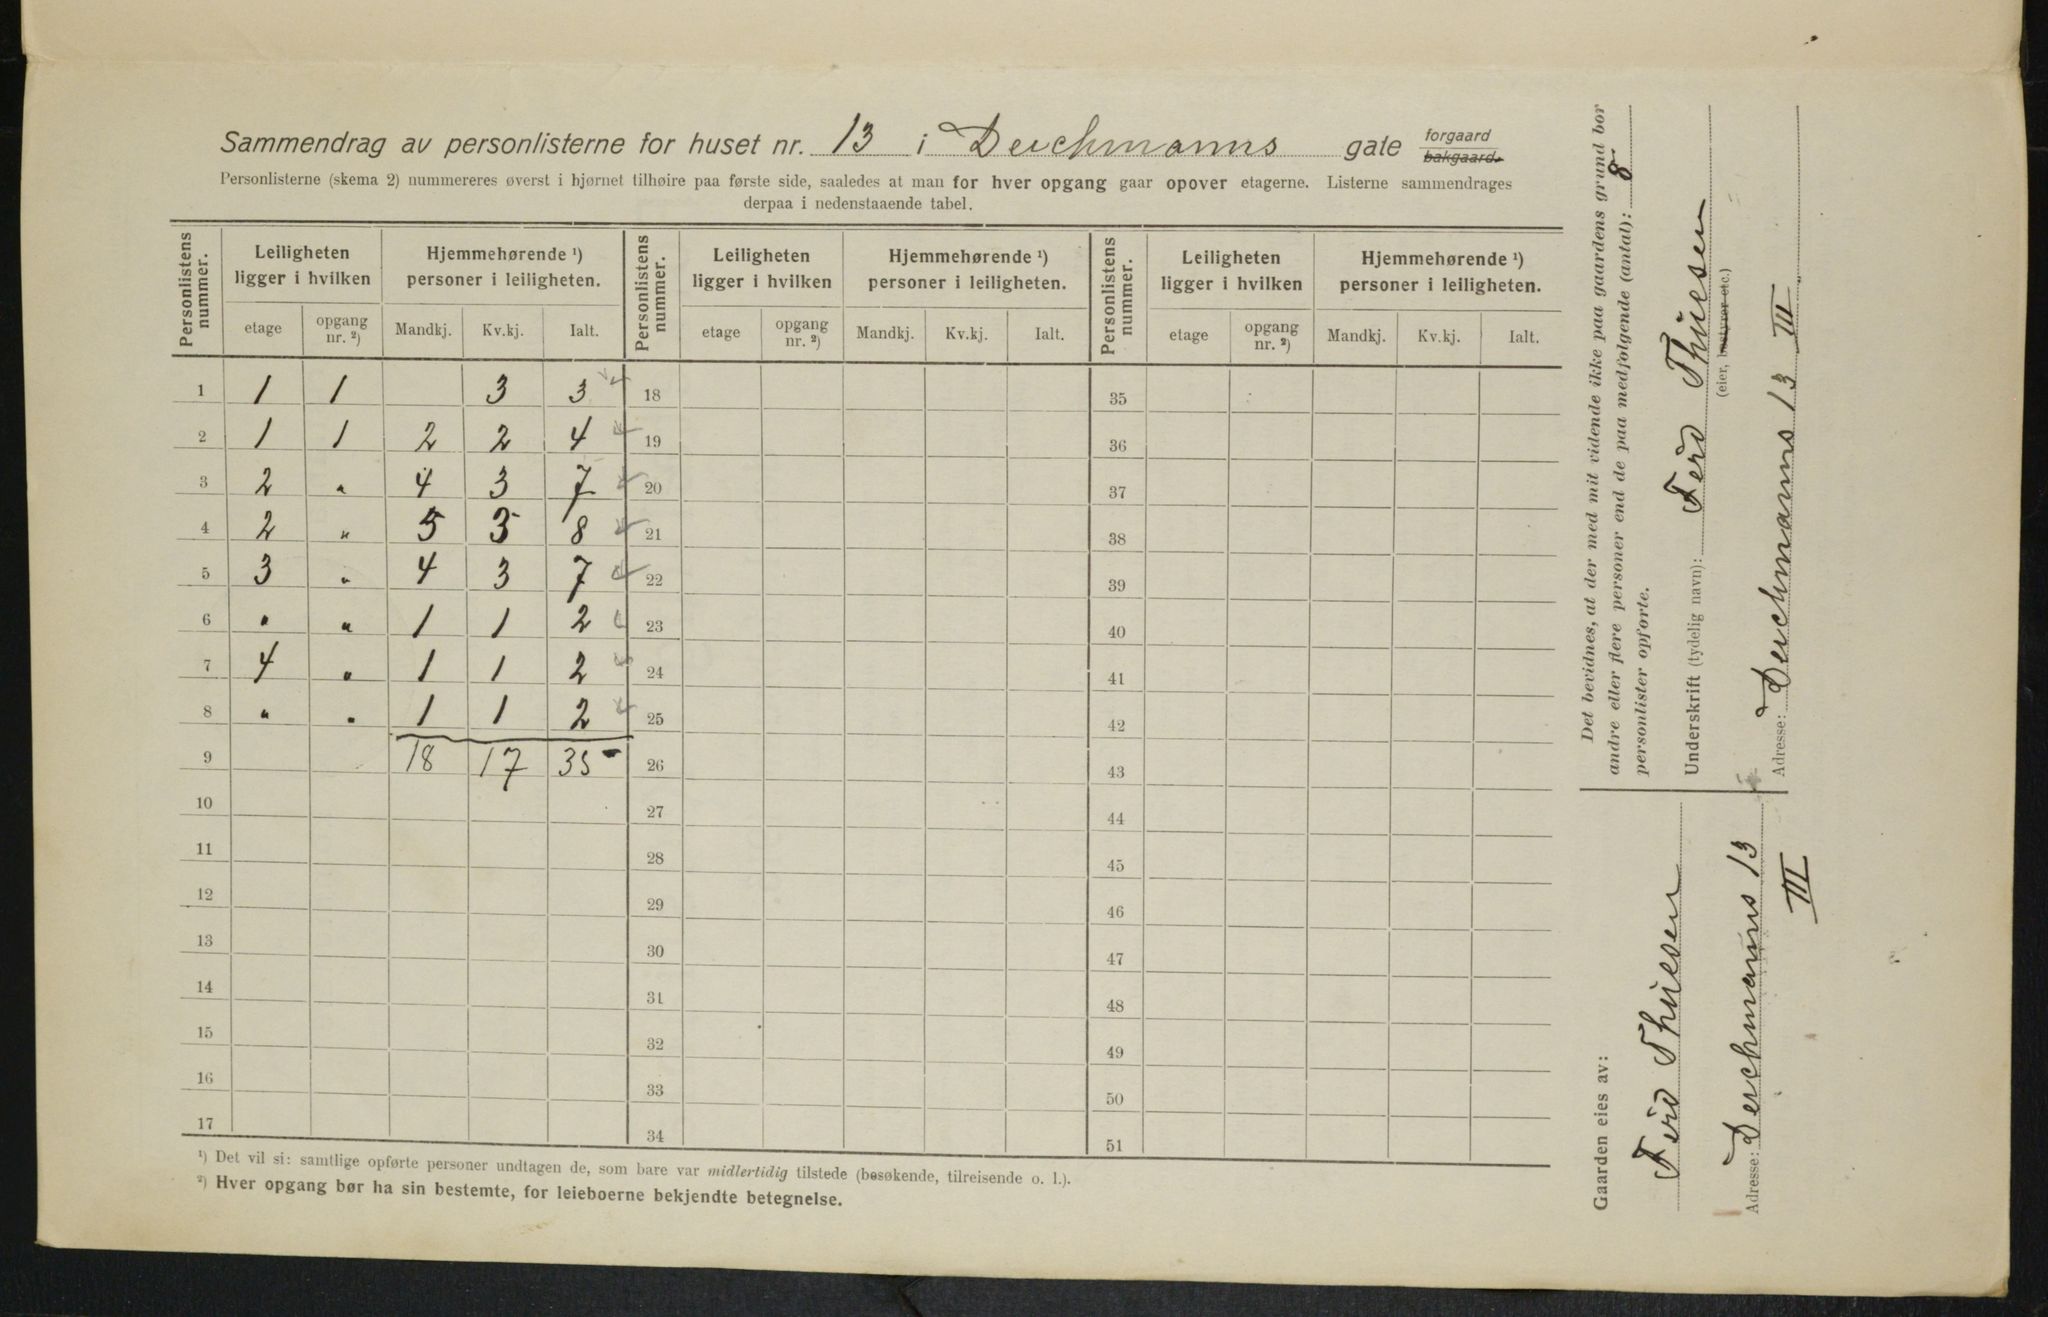 Sammendrag av personlisterne for huset nr. 13 i Deichmanns gate forgaard bakgaard.
Personlisterne (skema 2) nummereres øverst i hjørnet tilhøire paa første side, saaledes at man for hver opgang gaar opover etagerne. Listerne sammendrages
derpaa i nedenstaaende tabel.
Personlistens nummer. Leiligheten ligger i hvilken Hjemmehørende ¹) personer i leiligheten. Personlistens nummer. Leiligheten ligger i hvilken Hjemmehørende ¹) personer i leiligheten. Personlistens nummer. Leiligheten ligger i hvilken Hjemmehørende ¹) personer i leiligheten.
etage opgang nr. ²) Mandkj. Kv.kj. Ialt. etage opgang nr. ²) Mandkj. Kv.kj. Ialt. etage opgang nr. ²) Mandkj. Kv.kj. Ialt.
1 1 1 3 3 18 35
2 1 1 2 2 4 19 36
3 2 " 4 3 7 20 37
4 2 " 5 3 8 21 38
5 3 " 4 3 7 22 39
6 " " 1 1 2 23 40
7 4 " 1 1 2 24 41
8 " " 1 1 2 25 42
9 18 17 35 26 43
10 27 44
11 28 45
12 29 46
13 30 47
14 31 48
15 32 49
16 33 50
17 34 51
¹) Det vil si: samtlige opførte personer undtagen de, som bare var midlertidig tilstede (besøkende, tilreisende o. l.).
²) Hver opgang bør ha sin bestemte, for leieboerne bekjendte betegnelse.
Det bevidnes, at der med mit vidende ikke paa gaardens grund bor
andre eller flere personer end de paa medfølgende (antal): 8
personlister opførte.
Underskrift (tydelig navn): Ferd Thuesen
(eier, bestyrer etc.)
Adresse: Deichmanns 13 III
Gaarden eies av:
Ferd Thuesen
Adresse: Deichmanns 13
III